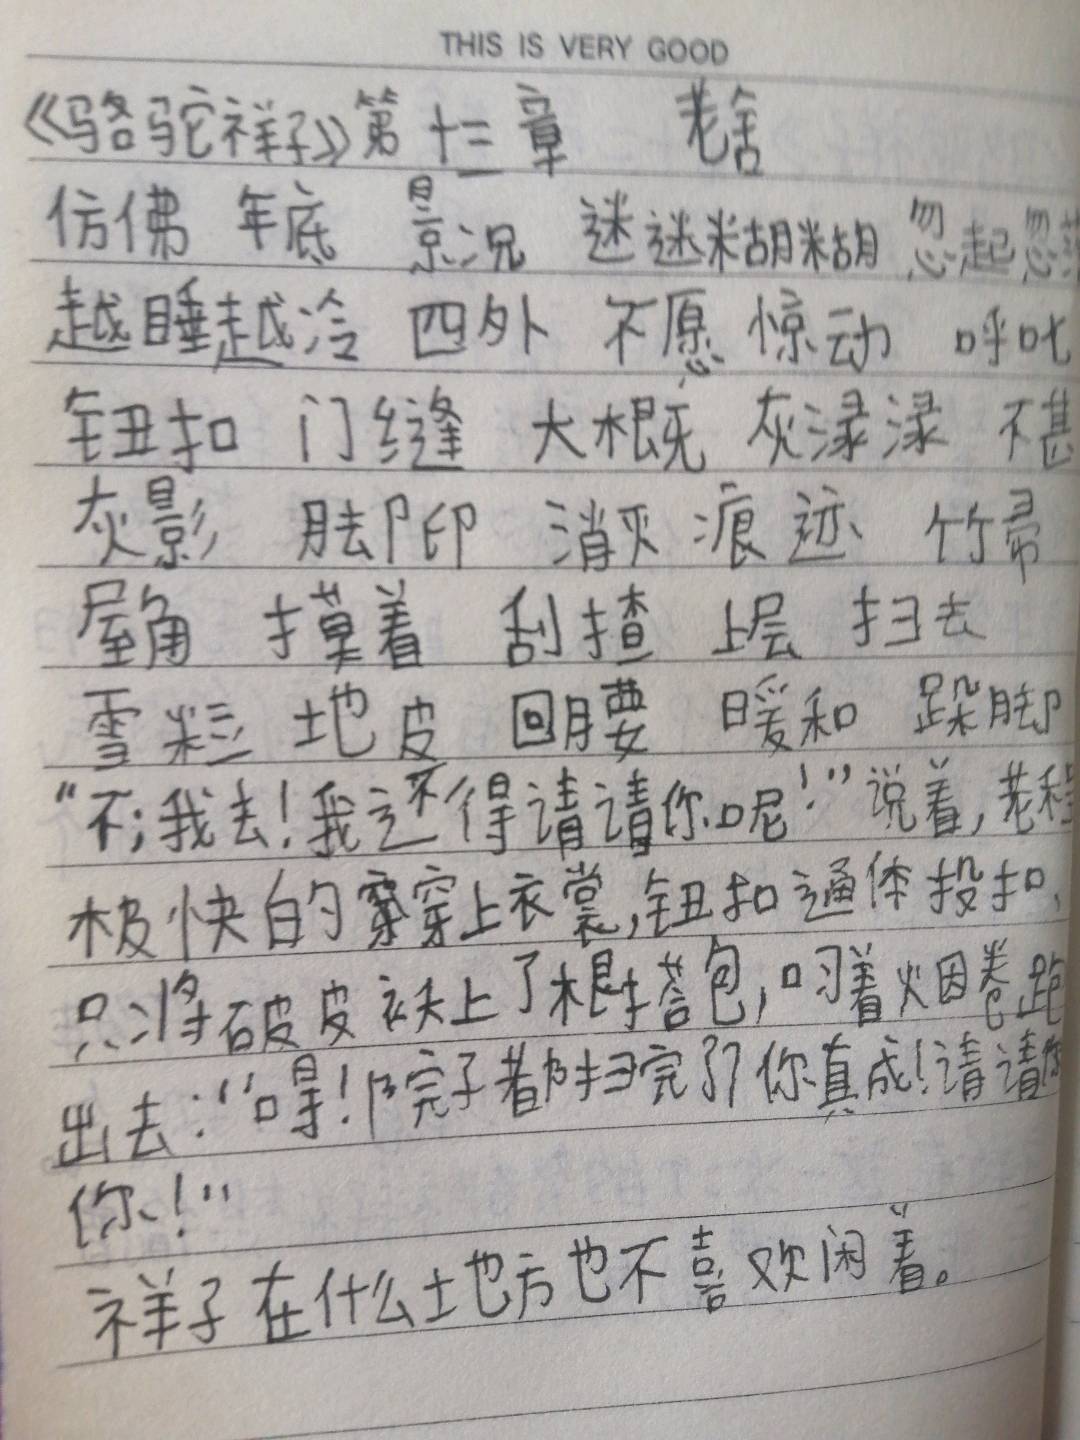 THIS IS VERY GOOD
《骆驼祥子》第十三章 老舍
仿佛 年底 景况 迷迷糊糊 忽起忽落
越睡越冷 四外 不愿 惊动 呼叱
钮扣 门缝 大概 灰渌渌 不甚
灰影 脚印 消灭 痕迹 竹帚
屋角 摸着 刮揸 上层 扫去
雪粒 地皮 回腰 暖和 跺脚
“不;我去!我还得请请你呢!”说着,老程
极快的穿穿上衣裳,钮扣通体投扣,
只将破皮袄上了根搭包,叼着烟卷跑
出去:“喝!院子都扫完了?你真成!请请你
你!”
祥子在什么地方也不喜欢闲着。